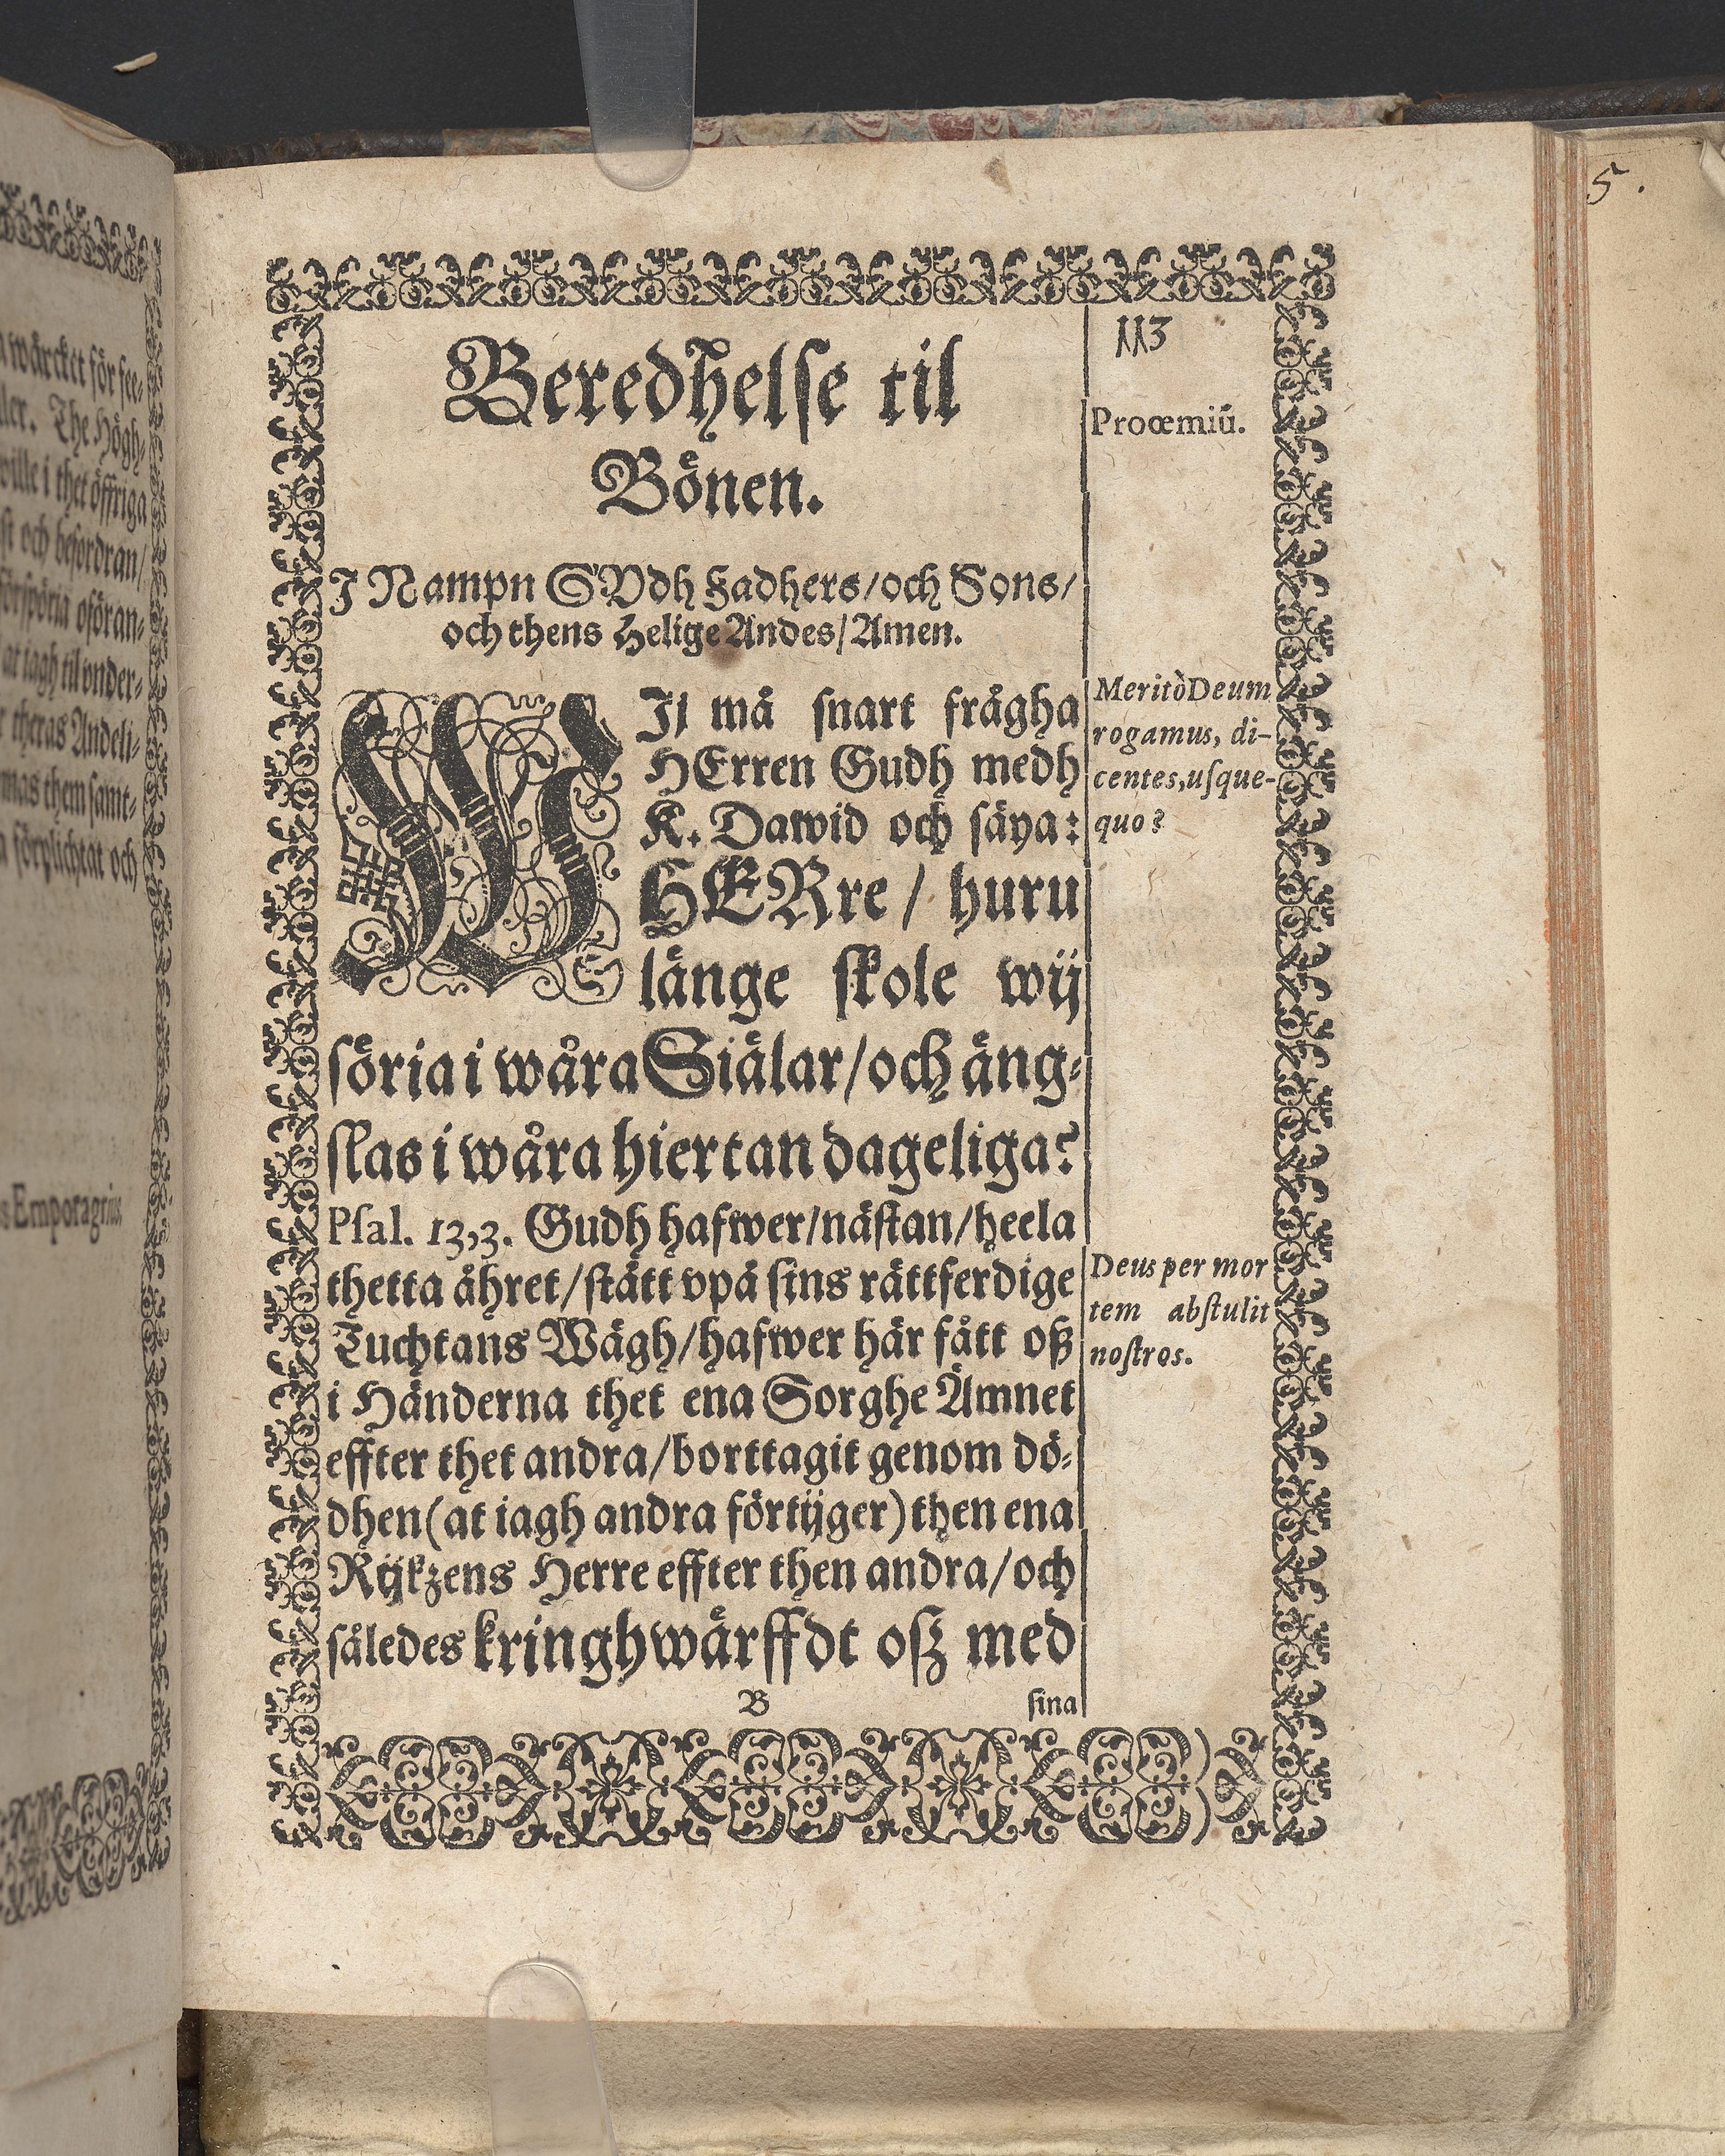 113
Beredhelse til
Prooemiũ.
Bönen.
J Nampn GUdh Fadhers/och Sons/
och thens Helige Andes/Amen.
WIj må snart frågha
HErren Gudh medh
K. Dawid och säya:
HERre / huru
länge skole wij
söria i wåra Siälar/och äng-
slas i wåra hiertan dageliga?
Psal. 13,3. Gudh hafwer/nästan/heela
thetta åhret/stått vpå sins rättferdige
Tuchtans Wägh/hafwer här fått oß
i Händerna thet ena Sorghe Ämnet
effter thet andra/borttagit genom dö-
dhen(at iagh andra förtijger)then ena
Rijkzens Herre effter then andra/och
således kringhwärffdt oß med
B
sina
MeritòDeum
rogamus, di-
centes,usque-
quo?
Deus per mor
tem abstulit
nostros.
5.
wärcket för see-
ller. The Högh-
wille i thet öffriga
st och befordran/
förspöria oföran-
at iagh til vnder-
theras Andeli-
mas them samt-
förplichtat och
s Emporagrius